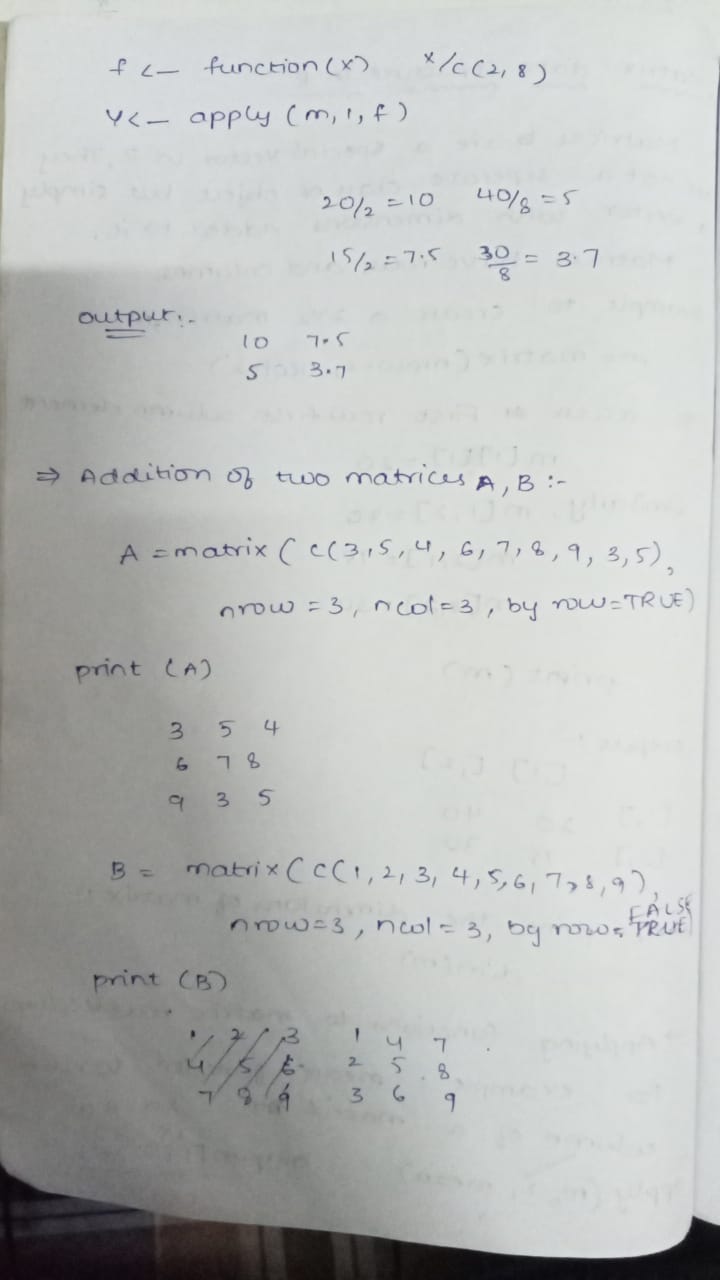 f <- function(x) x/c(2,8)
Y<- apply (m,1,f)
20/2 = 10 40/8 = 5
15/2 = 7.5 30/8 = 3.7
output:-
10 7.5
5 3.7
⇒ Addition of two matrices A, B :-
A = matrix ( c(3,5,4,6,7,8,9,3,5),
nrow = 3, ncol=3, by row=TRUE)
print (A)
3 5 4
6 7 8
9 3 5
B = matrix (c(1,2,3,4,5,6,7,8,9),
FALSE
nrow=3, ncol = 3, by row= TRUE)
print (B)
1 2 3 1 4 7
4 5 6 2 5 8
7 8 9 3 6 9